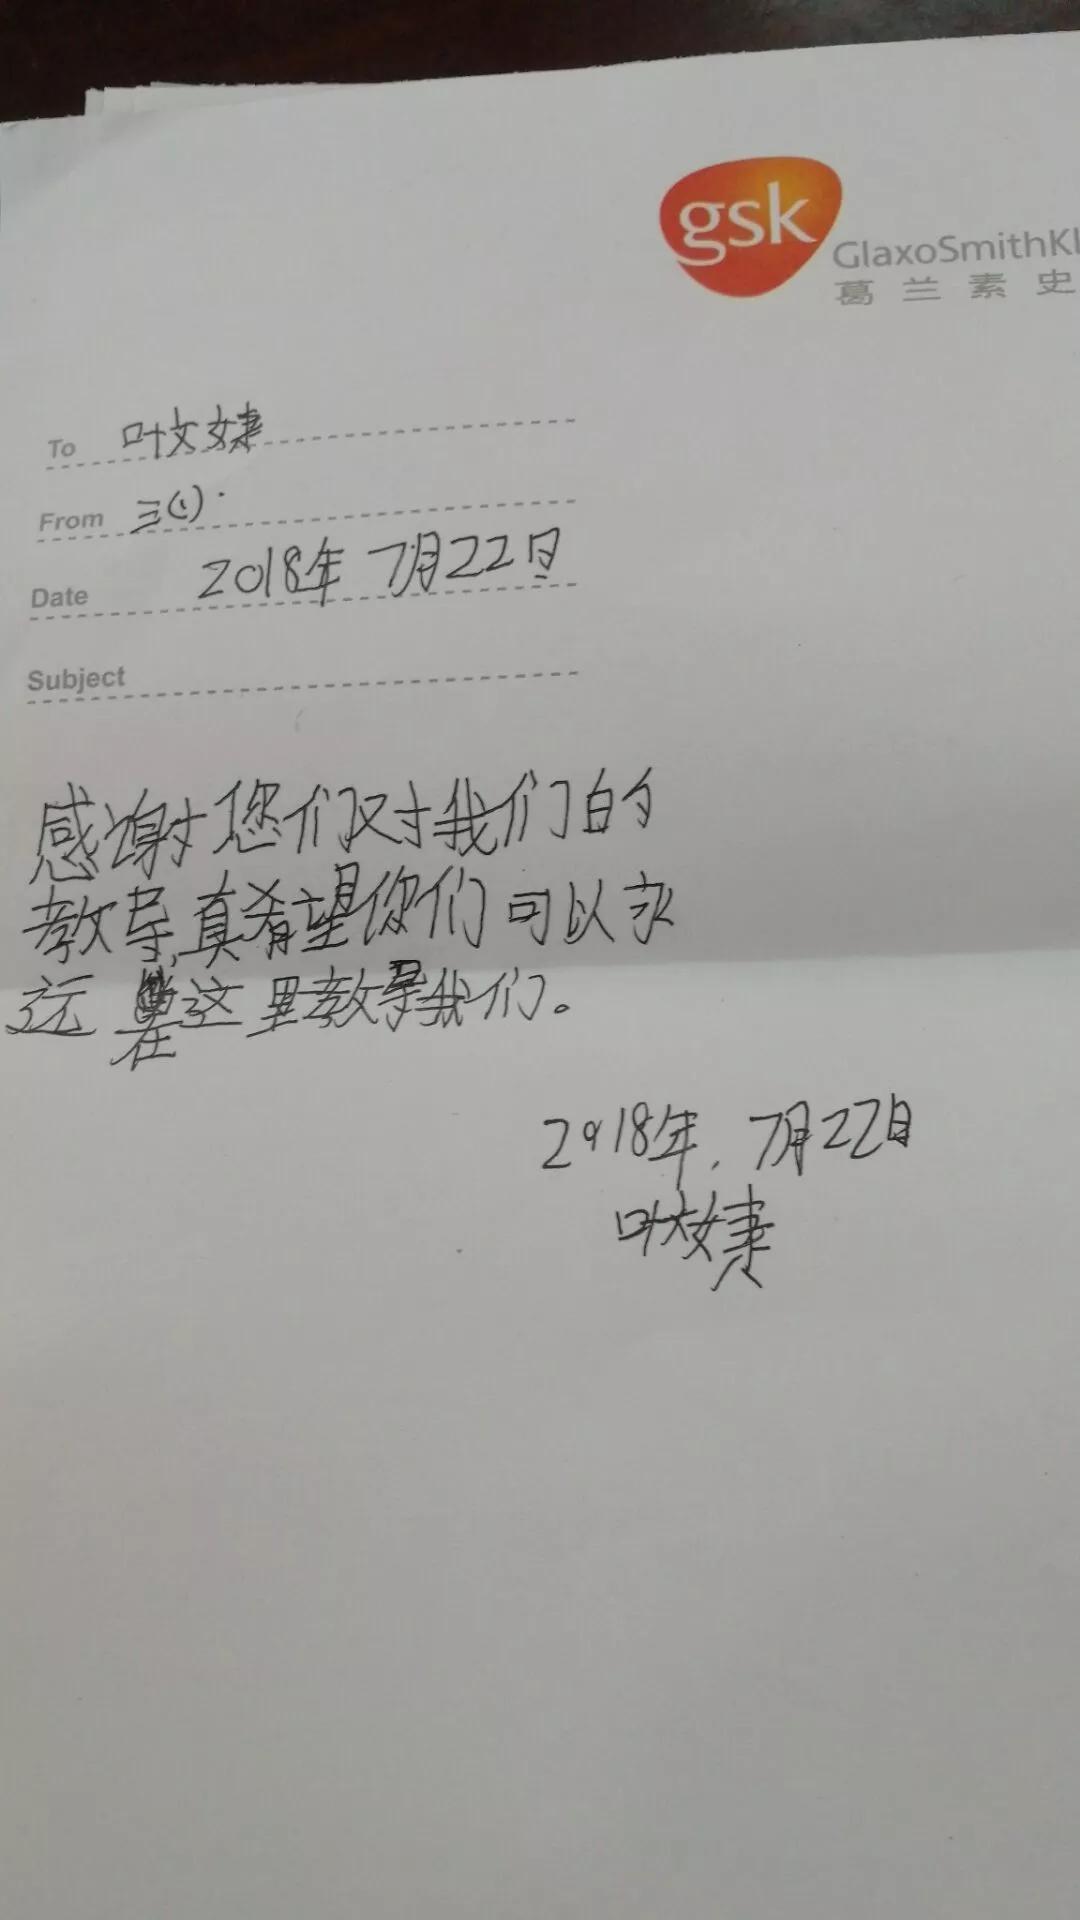 gsk
GlaxoSmithKl
葛兰素史
To 叶文婕
From 三(1).
Date 2018年7月22日
Subject
感谢您们对我们的
教导,真希望你们可以永
远在这里教导我们。
2018年.7月22日
叶文婕